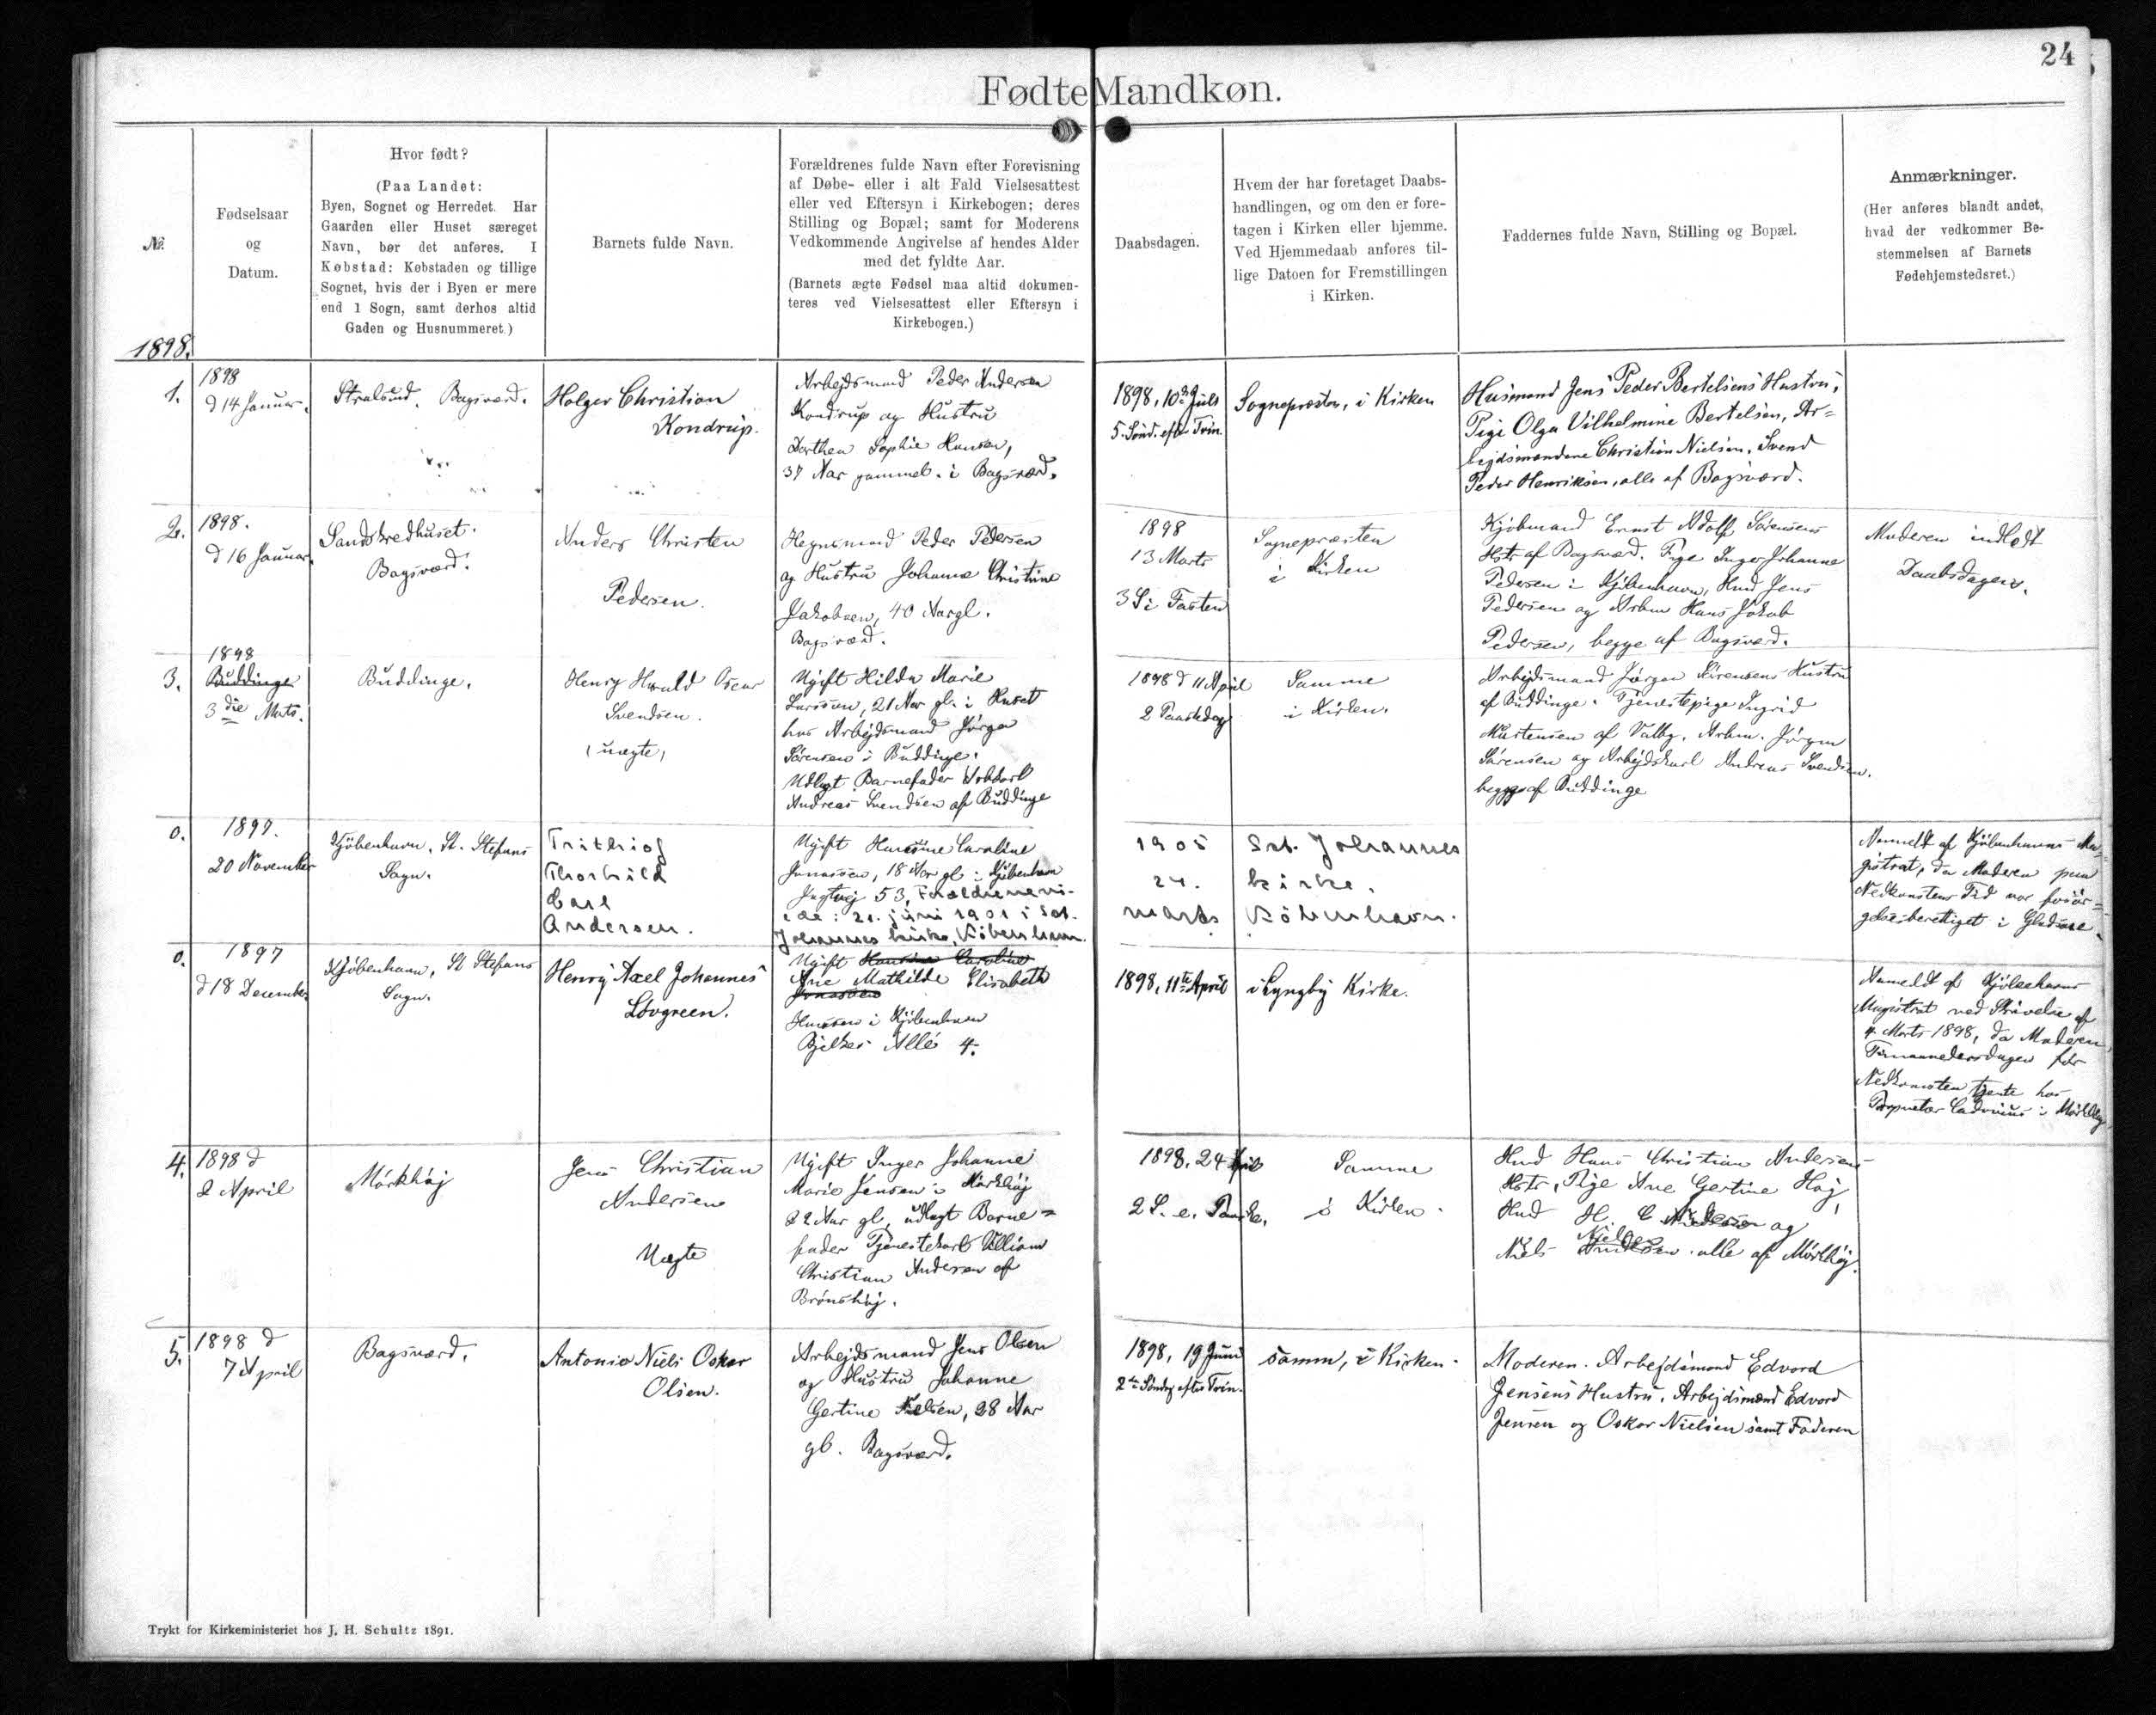 24
Fødte Mandkøn.
№
Fødselsaar
og
Datum.
Hvor født?
(Paa Landet:
Byen, Sognet og Herredet. Har
Gaarden eller Huset særeget
Navn, bør det anføres. I
Købstad: Købstaden og tillige
Sognet, hvis der i Byen er mere
end 1 Sogn, samt derhos altid
Gaden og Husnummeret.)
Barnets fulde Navn.
Forældrenes fulde Navn efter Forevisning
af Døbe- eller i alt Fald Vielsesattest
eller ved Eftersyn i Kirkebogen; deres
Stilling og Bopæl; samt for Moderens
Vedkommende Angivelse af hendes Alder
med det fyldte Aar.
(Barnets ægte Fødsel maa altid dokumen-
teres ved Vielsesattest eller Eftersyn i
Kirkebogen.)
Daabsdagen.
Hvem der har foretaget Daabs-
handlingen, og om den er fore-
tagen i Kirken eller hjemme.
Ved Hjemmedaab anføres til-
lige Datoen for Fremstillingen
i Kirken.
Faddernes fulde Navn, Stilling og Bopæl.
Anmærkninger.
(Her anføres blandt andet,
hvad der vedkommer Be-
stemmelsen af Barnets
Fødehjemstedsret.)
1898.
1.
1898
d 14 Januar.
Stralsund. Bagsværd.
Holger Christian
Kondrup.
Arbejdsmand Peder Andersen
Kondrup og Hustru
Dorthea Sophie Hansen,
37 Aar gammel. i Bagsværd.
1898, 10de Juli
5. Sønd. efter Trin.
Sognepræsten, i Kirken
Husmand Jens Peder Bertelsens Hustru,
Pige Olga Vilhelmine Bertelsen, Ar=
bejdsmændene Christian Nielsen, Svend
Peder Henriksen, alle af Bagsværd.
2.
1898.
d 16 Januar.
Sandskredhuset.
Bagsværd.
Anders Christen
Pedersen.
Hegnsmand Peder Pedersen
og Hustru Johanne Christine
Jakobsen, 40 Aar gl.
Bagsværd.
1898
13 Marts
3 S i Fasten
Sognepræsten
i Kirken
Kjøbmand Ernst Adolf Sørensens
Hstr af Bagsværd. Pige Inger Johanne
Pedersen i Kjøbenhavn, Hmd Jens
Pedersen og Arbm Hans Jakob
Pedersen, begge af Bagsværd.
Moderen indledt
Daabsdagen.
3.
1898
Buddinge
3die Marts.
Buddinge.
Henry Harald Oscar
Svendsen.
(uægte)
Ugift Hilda Marie
Larsson, 21 Aar gl. i Huset
hos Arbejdsmand Jørgen
Sørensen i Buddinge.
Udlagt Barnefader Arbkarl
Andreas Svendsen af Buddinge
1898 d 11 April
2 Paaskedag
Samme
i Kirken.
Arbejdsmand Jørgen Sørensens Hustru
af Buddinge. Tjenestepige Ingrid
Mårtensen af Valby. Arbm. Jørgen
Sørensen og Arbejdskarl Andreas Svendsen.
begge af Buddinge
0.
1897.
20 November
Kjøbenhavn. St. Stefans
Sogn.
Frithiof
Thorkild
Carl
Andersen.
Ugift Hansine Caroline
Jonassen, 18 Aar gl i Kjøbenhavn
Jagtvej 53, Forældrene vi-
ede: 21. juni 1901 i Sct.
Johannes kirke, København.
1905
24.
marts
Sct. Johannes
kirke.
København.
Anmeldt af Kjøbenhavns Ma-
gistrat, da Moderen paa
Nedkomstens Tid var forsør-
gelsesberettiget i Gladsaxe.
0.
1897
d 18 December
Kjøbenhavn, St Stefans
Sogn.
Henry Axel Johannes
Løvgreen.
Ugift Hansine Caroline
Ane Mathilde Elisabeth
Jonassen
Hansen i Kjøbenhavn
Bjelkes Alle 4.
1898, 11te April
i Lyngby Kirke.
Anmeldt af Kjøbenhavns
Magistrat ved Skrivelse af
4 Marts 1898, da Moderen
Timaanedersdagen før
Nedkomsten tjente hos
Proprietær i Mørkhøj
4.
1898 d
2 April
Mørkhøj
Jens Christian
Andersen
Uægte
Ugift Inger Johanne
Marie Jensen i Mørkhøj
22 Aar gl, udlagt Barne=
fader Tjenestekarl Villiam
Christian Andersen af
Brønshøj.
1898, 24 April
2 S. e. Paaske.
Samme
i Kirken.
Hmd Hans Christian Andersens
Hstr, Pige Ane Gertine Høj,
Hmd H. C Andersen og
Niels Nielsen alle af Mørkhøj.
5.
1898 d
7 April
Bagsværd.
Antonio Niels Oskar
Olsen.
Arbejdsmand Jens Olsen
og Hustru Johanne
Gertine Nielsen, 28 Aar
gl. Bagsværd.
1898, 19 Juni
2den Søndag efter Trin.
Samm, i Kirken.
Moderen. Arbejdsmand Edvard
Jensens Hustru. Arbejdsmand Edvard
Jensen og Oskar Nielsen samt Faderen
Trykt for Kirkeministeriet hos J. H. Schultz 1891.